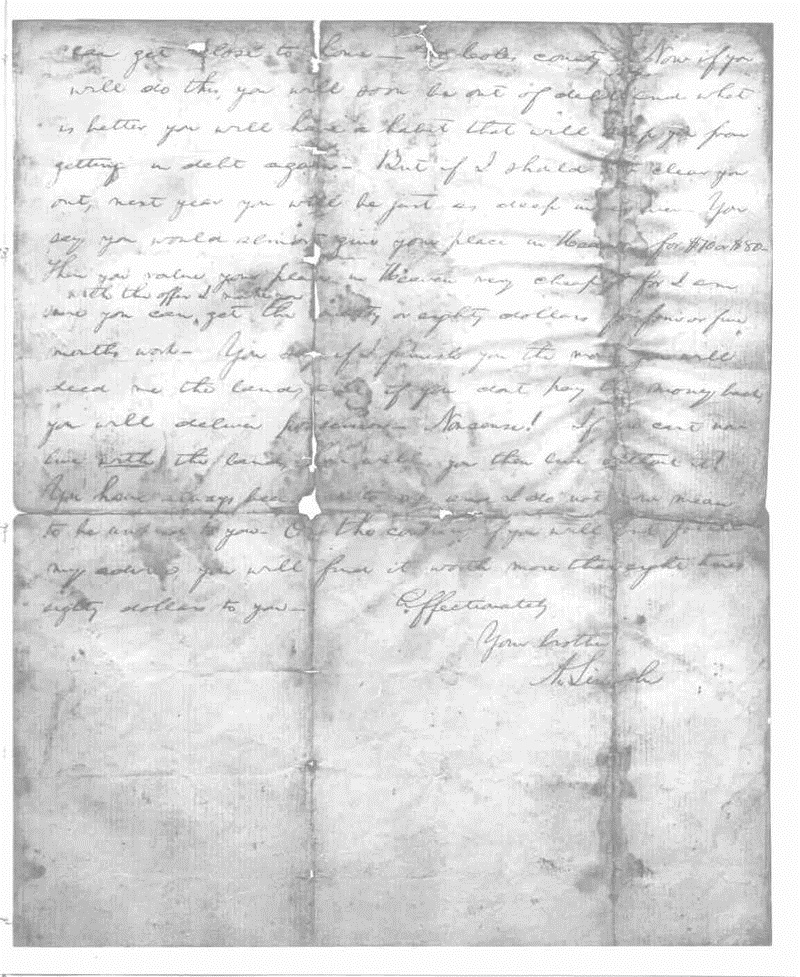 can get close to home — in Coles county — Now if you
will do this, you will soon be out of debt, and what
is better you will have a habit that will keep you from
getting in debt again — But if I should clear you
out, next year you will be just as deep in You
say you would almost give your place in Heaven for $70 or $80 —
Then you value your place in Heaven very cheaply for I am
with the offer I make you
sure you can get the seventy or eighty dollars for four or five
months work — You say if I furnish you the money you will
deed me the land, and if you dont pay the money back,
you will deliver possession — Nonsense! If you cant now
live with the land, how will you then live without it?
You have always been to me, and I do not now mean
to be unkind to you — On the contrary if you will but follow
my advice, you will find it worth more than eight times
eighty dollars to you —
Affectionately
Your brother
A. Lincoln